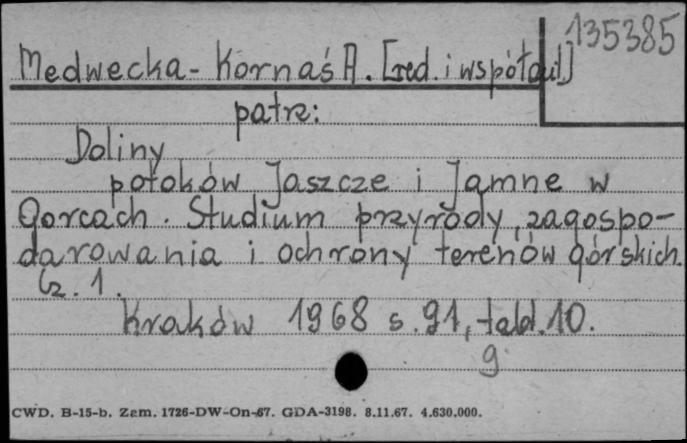 135385
Medwecka-Kornaś A. [red. i współaut.]
patrz:
Doliny
potoków Jaszcze i Jamne w
Gorcach. Studium przyrody, zagospo-
darowania i ochrony terenów górskich.
Cz. 1.
Kraków 1968 s. 91, tabl. 10.
g.
CWD. B-15-b. Zam. 1726-DW-On-67. GDA-3198. 8.11.67. 4.630.000.